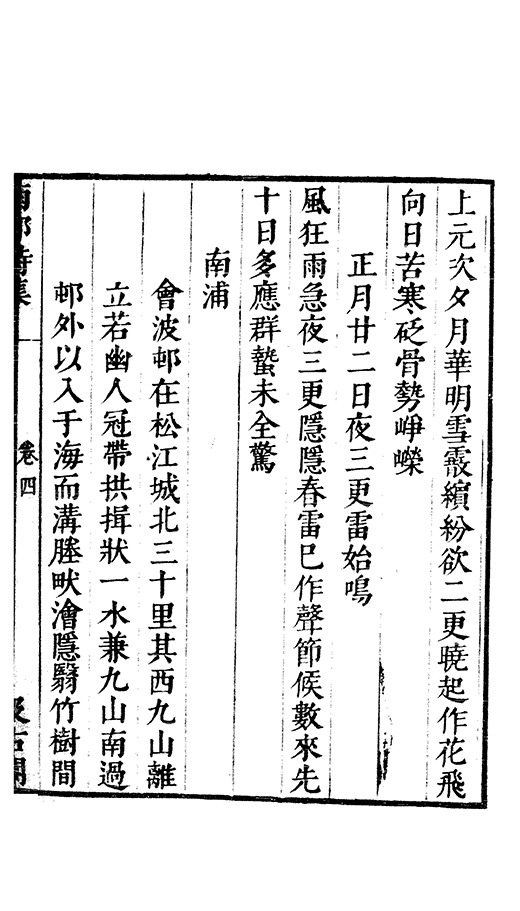 上元次夕月華明雪霰繽紛欲二更曉起作花飛
向日苦寒砭骨勢崢嶸
正月廿二日夜三更雷始鳴
風狂雨急夜三更隱隱春雷已作聲節候數來先
十日多應群蟄未全驚
南浦
會波邨在松江城北三十里其西九山離
立若幽人冠帶拱揖狀一水兼九山南過
邨外以入于海而溝塍畎澮隱翳竹樹間
南邨詩集
卷四
汲古閣